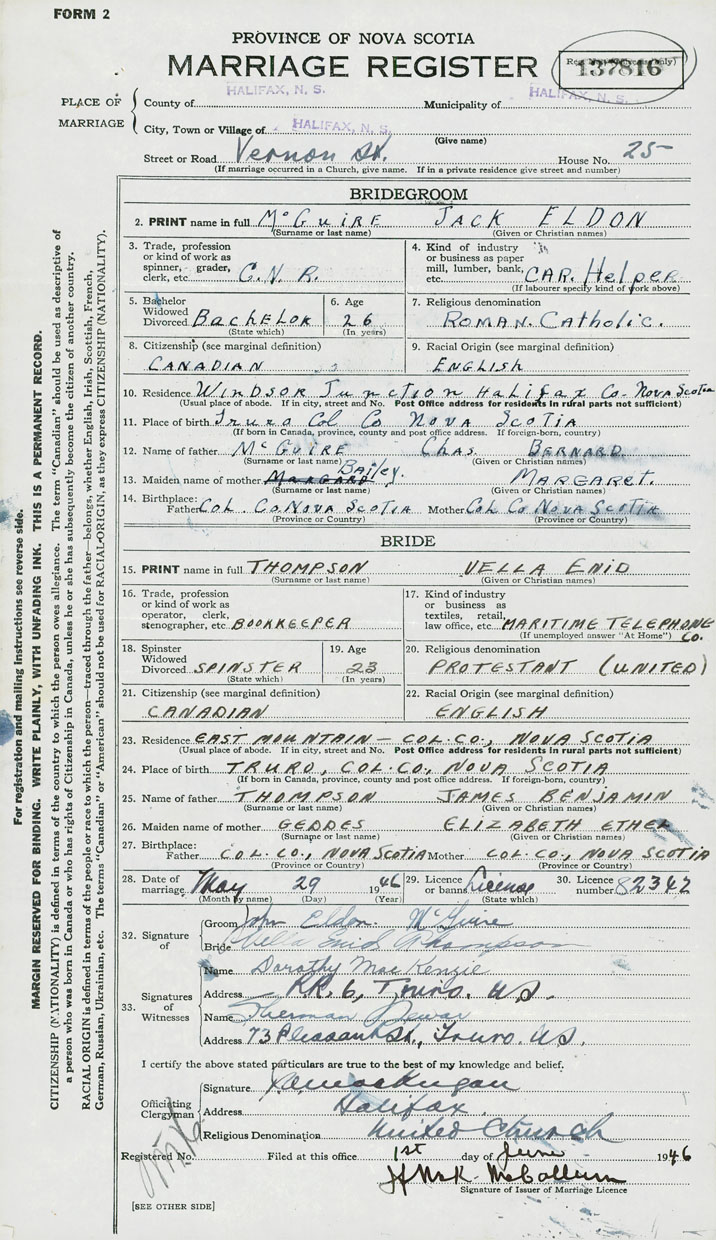 FORM 2
PROVINCE OF NOVA SCOTIA
MARRIAGE REGISTER
137816
PLACE OF MARRIAGE
County of HALIFAX, N. S. Municipality of HALIFAX, N. S.
City, Town or Village of HALIFAX, N. S.
(Give name)
Street or Road Vernon St. House No. 25
(If marriage occurred in a Church, give name. If in a private residence give street and number)
BRIDEGROOM
2. PRINT name in full McGUIRE JACK ELDON
(Surname or last name) (Given or Christian names)
3. Trade, profession or kind of work as spinner, grader, clerk, etc. C.N.R.
4. Kind of industry or business as paper mill, lumber, bank, etc. CAR. Helper
(If labourer specify kind of work above)
5. Bachelor Widowed Divorced BACHELOR
(State which)
6. Age 26
(In years)
7. Religious denomination
ROMAN. Catholic.
8. Citizenship (see marginal definition)
CANADIAN
9. Racial Origin (see marginal definition)
ENGLISH
10. Residence WINDSOR Junction Halifax Co. Nova Scotia
(Usual place of abode. If in city, street and No. Post Office address for residents in rural parts not sufficient)
11. Place of birth Truro Col Co Nova Scotia
(If born in Canada, province, county and post office address. If foreign-born, country)
12. Name of father McGUIRE Chas. BERNARD
(Surname or last name) (Given or Christian names)
13. Maiden name of mother Margard Bailey. MARGARET.
(Surname or last name) (Given or Christian names)
14. Birthplace: Father Col. Co Nova Scotia Mother Col Co Nova Scotia
(Province or Country) (Province or Country)
BRIDE
15. PRINT name in full THOMPSON VELLA ENID
(Surname or last name) (Given or Christian names)
16. Trade, profession or kind of work as operator, clerk, stenographer, etc BOOKKEEPER
17. Kind of industry or business as textiles, retail, law office, etc. MARITIME TELEPHONE CO.
(If unemployed answer "At Home")
18. Spinster Widowed Divorced SPINSTER
(State which)
19. Age 23
(In years)
20. Religious denomination
PROTESTANT (UNITED)
21. Citizenship (see marginal definition)
CANADIAN
22. Racial Origin (see marginal definition)
ENGLISH
23. Residence EAST MOUNTAIN - COL. CO., NOVA SCOTIA
(Usual place of abode. If in city, street and No. Post Office address for residents in rural parts not sufficient)
24. Place of birth TRURO, COL. CO., NOVA SCOTIA
(If born in Canada, province, county and post office address. If foreign-born, country)
25. Name of father THOMPSON JAMES BENJAMIN
(Surname or last name) (Given or Christian names)
26. Maiden name of mother GEDDES ELIZABETH ETHEL
(Surname or last name) (Given or Christian names)
27. Birthplace: Father COL. CO., NOVA SCOTIA Mother COL. CO., NOVA SCOTIA
(Province or Country) (Province or Country)
28. Date of marriage May 29 1946
(Month by name) (Day) (Year)
29. Licence or banns License
(State which)
30. Licence number 82342
32. Signature of
Groom John Eldon McGuire
Bride Vella Enid Thompson
33. Signatures of Witnesses
Name Dorothy MacKenzie
Address R.R. 6, Truro. N.S.
Name Sherman Dewar
Address 73 Pleasant St., Truro. N.S.
I certify the above stated particulars are true to the best of my knowledge and belief.
Officiating Clergyman
Signature
Address Halifax.
Religious Denomination United Church
Registered No. Filed at this office 1st day of June 1946
McCallum
Signature of Issuer of Marriage Licence
[SEE OTHER SIDE]
For registration and mailing instructions see reverse side.
MARGIN RESERVED FOR BINDING. WRITE PLAINLY, WITH UNFADING INK. THIS IS A PERMANENT RECORD.
CITIZENSHIP (NATIONALITY) is defined in terms of the country to which the person owes allegiance. The term "Canadian" should be used as descriptive of
a person who was born in Canada or who has rights of Citizenship in Canada, unless he or she has subsequently become the citizen of another country.
RACIAL ORIGIN is defined in terms of the people or race to which the person—traced through the father—belongs, whether English, Irish, Scottish, French,
German, Russian, Ukrainian, etc. The terms "Canadian" or "American" should not be used for RACIAL ORIGIN, as they express CITIZENSHIP (NATIONALITY).